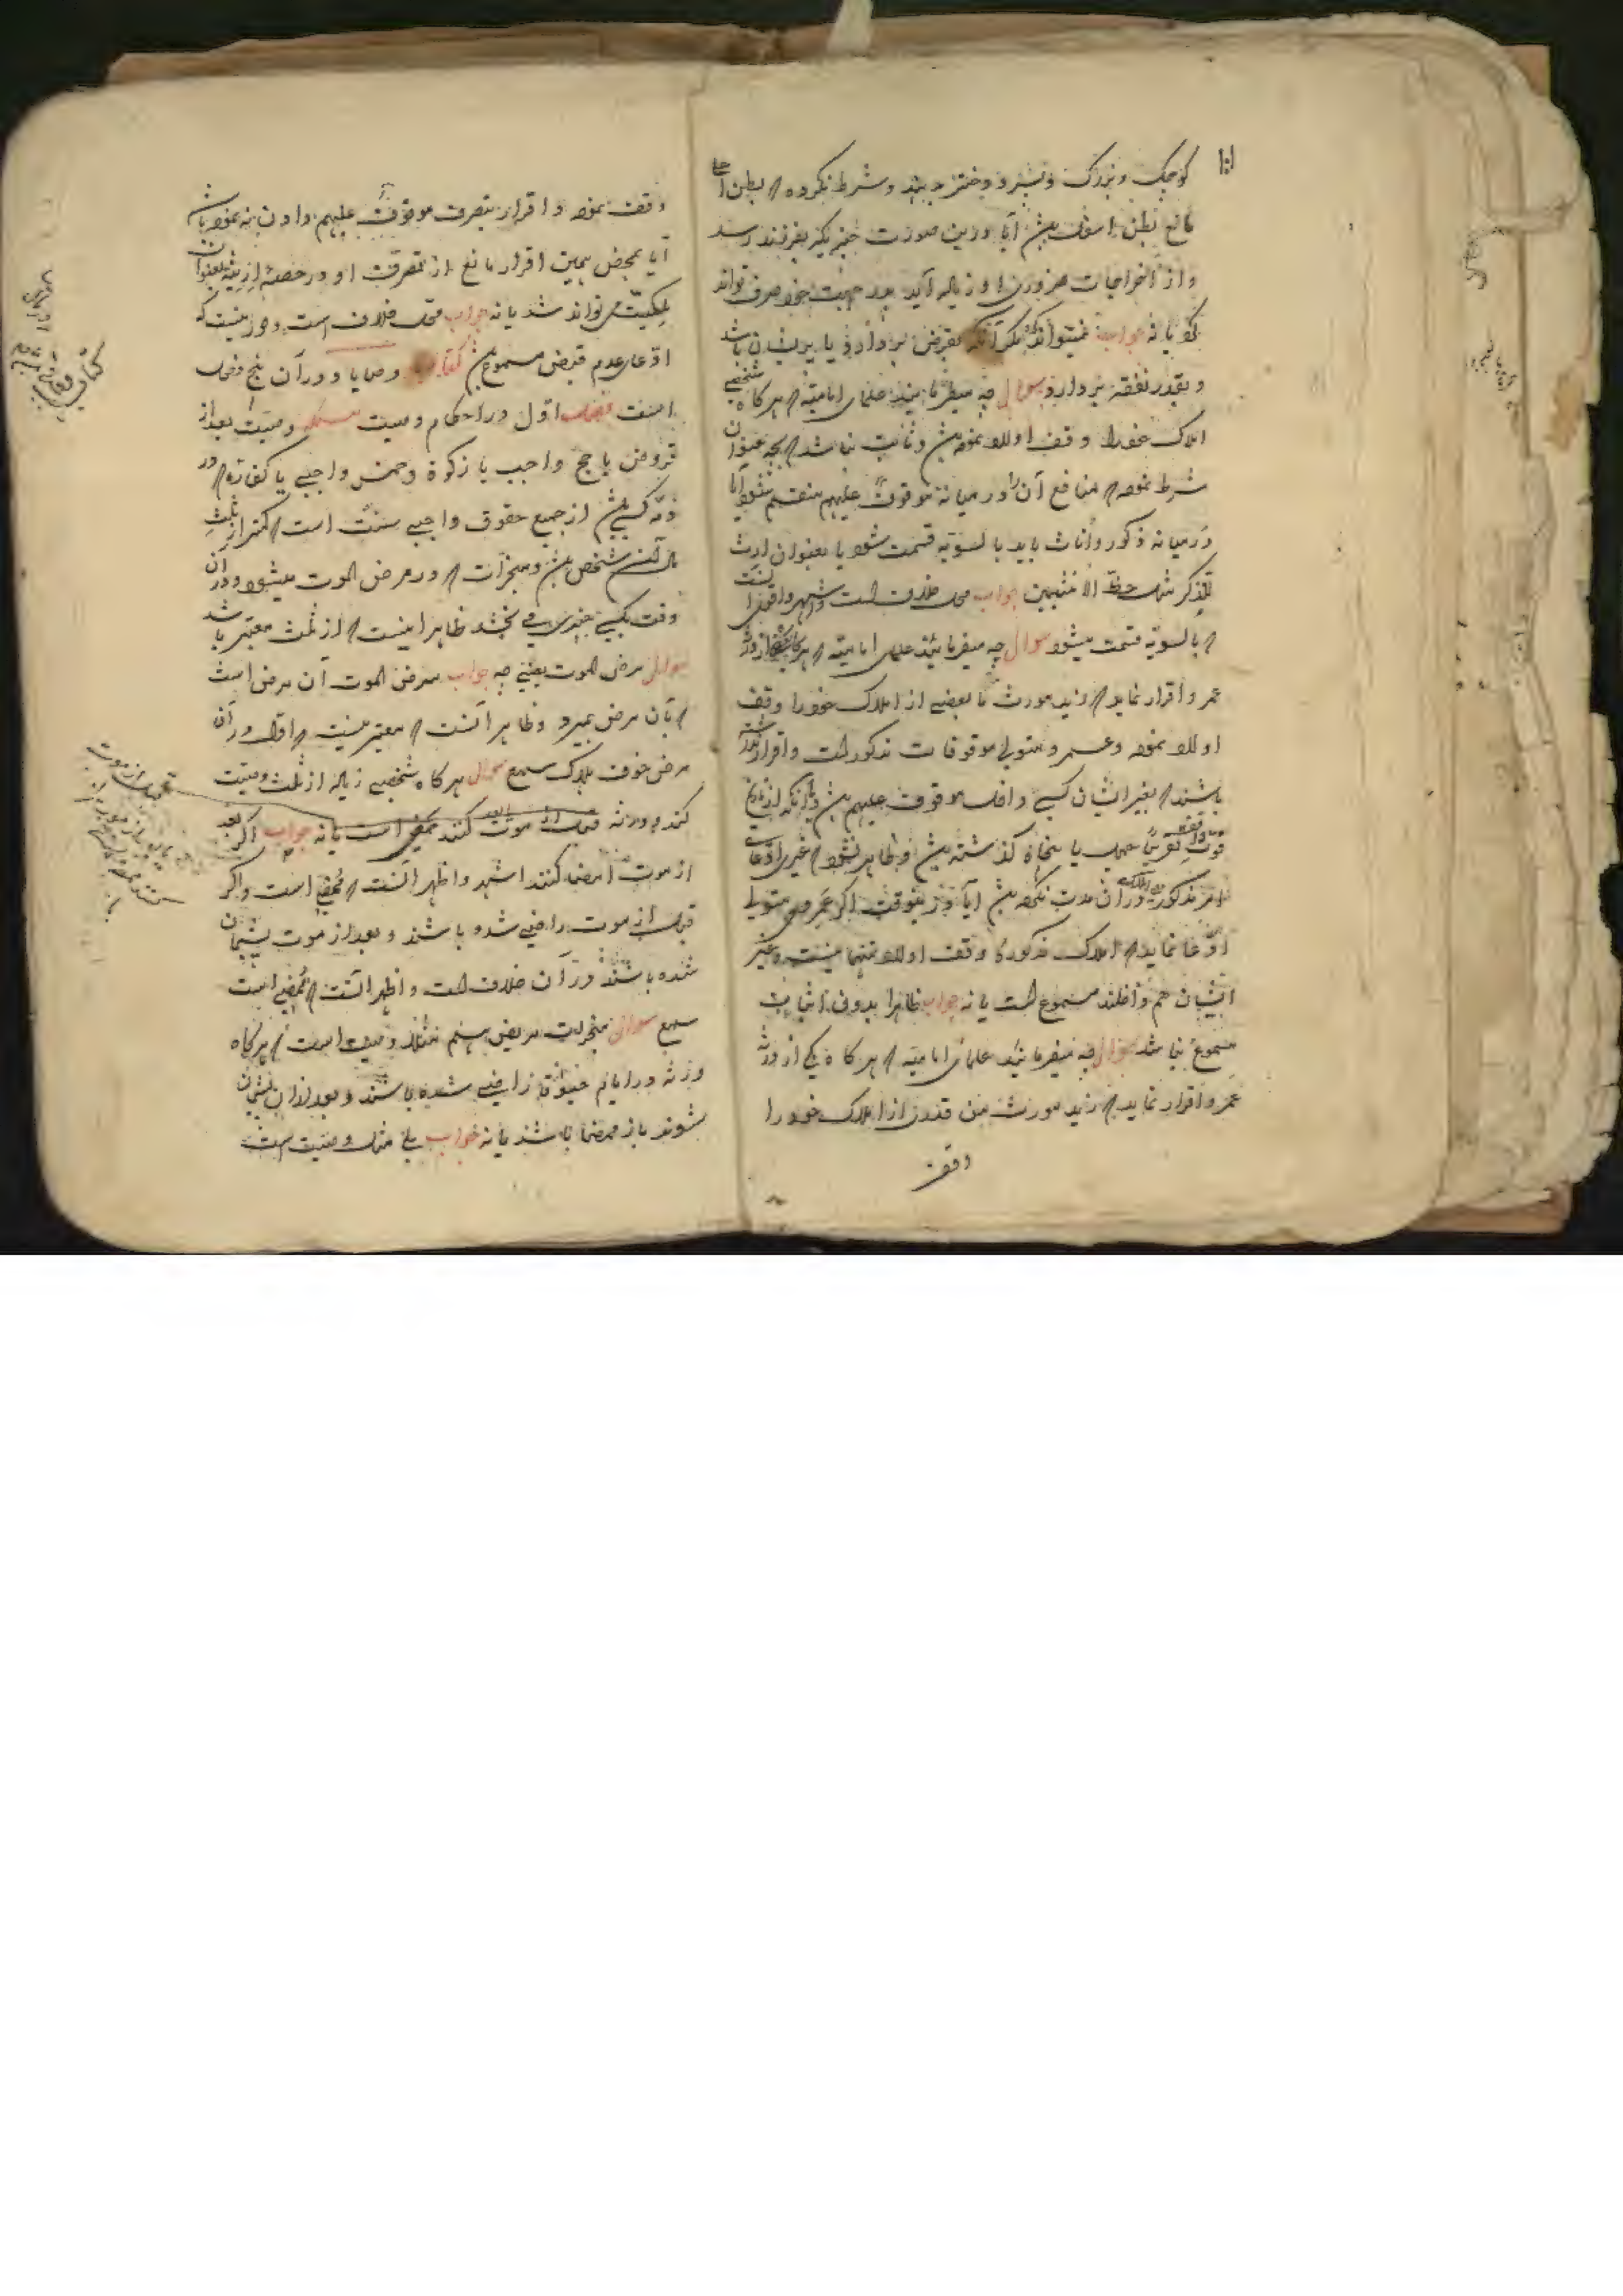 کوچک و بزرگ و پسر و دختر دارند و شرط نکرده که بطن اعلی
مانع بطن اسفل باشد آیا درین صورت چیزیکه بفرزند رسد
و از اخراجات ضروری او زیاده آید پدر جهت خود صرف تواند
کرد یا نه جواب نمیتواند مگر آنکه بقرض بردارد یا پریشان باشد
و بقدر نفقه بردارد سوال چه میفرمایند علمای امامیه که هرگاه شخصی
املاک خود را وقف اولاد نموده باشد و ثابت نباشد که بچه عنوان
شرط نموده که منافع آن را در میانه موقوف علیهم منقسم شود آیا
در میانه ذکور و اناث باید بالسویه قسمت شود یا بعنوان ارث
للذکر مثل حظ الانثیین جواب محل خلاف است و اشهر و اقوی آنست
که بالسویه قسمت میشود سوال چه میفرمایند علمای امامیه که هرگاه از ورثه
عمر و اقرار نماید که زید مورث ما بعضی از املاک خود را وقف
اولاد نموده و عمرو متولی موقوفات مذکور است و اقرار داشته
باشند که بغیر ایشان کسی داخل موقوف علیهم باشد و آنکه از تاریخ
فوت واقف قریب چهل یا پنجاه گذشته باشد و ظاهر نشود که غیری ادعای
امر مذکور در آن مدت نکرده باشد آیا درینوقت اگر عمرو متولی
ادعا نماید که املاک مذکوره وقف اولاد تنها نیست و غیر
ایشان هم داخلند مسموع است یا نه جواب ظاهرا بدون اثبات
مسموع نباشد سوال چه میفرمایند علمای امامیه که هرگاه یکی از ورثه
عمرو اقرار نماید که زید مورث من قدری از املاک خود را
وقف
وقف نموده و اقرار بتصرف موقوف علیهم دادن نه نموده باشد
آیا بمحض همین اقرار مانع از تصرف او در حصه ارثیه بعنوان
ملکیت می تواند شد یا نه جواب محل خلاف است و دور نیست که
ادعای عدم قبض مسموع باشد کتاب وصایا و در آن پنج فصل
است فصل اول در احکام وصیت مسئله وصیت بعد از
قروض یا حج واجب یا زکوة و خمس واجبی یا کفاره که در
ذمه کسی باشد از جمیع حقوق واجبی سنت است که کمتر از ثلث
مال آن شخص باشد و منجزات که در مرض الموت میشود و در آن
وقت بکسی چیزی می بخشد ظاهرا اینست که از ثلث معتبر باشد
سوال مرض الموت یعنی چه جواب مرض الموت آن مرض است
که بآن مرض بمیرد و ظاهر آنست که معتبر نیست که اول در آن
مرض خوف هلاک سمع سوال هرگاه شخصی زیاده از ثلث وصیت
کند و ورثه قبل از موت کنند ممضی است یا نه جواب اگر بعد
از موت امضا کنند اشهر و اظهر آنست که ممضی است و اگر
قبل از موت راضی شده باشند و بعد از موت پشیمان
شده باشند در آن خلاف است و اظهر آنست که ممضی است
سمع سوال منجزات مریض هم مثل وصیت است که هرگاه
ورثه در ایام حیوة راضی شده باشند و بعد از آن پشیمان
شوند باز ممضا باشد یا نه جواب بلی مثل وصیت است